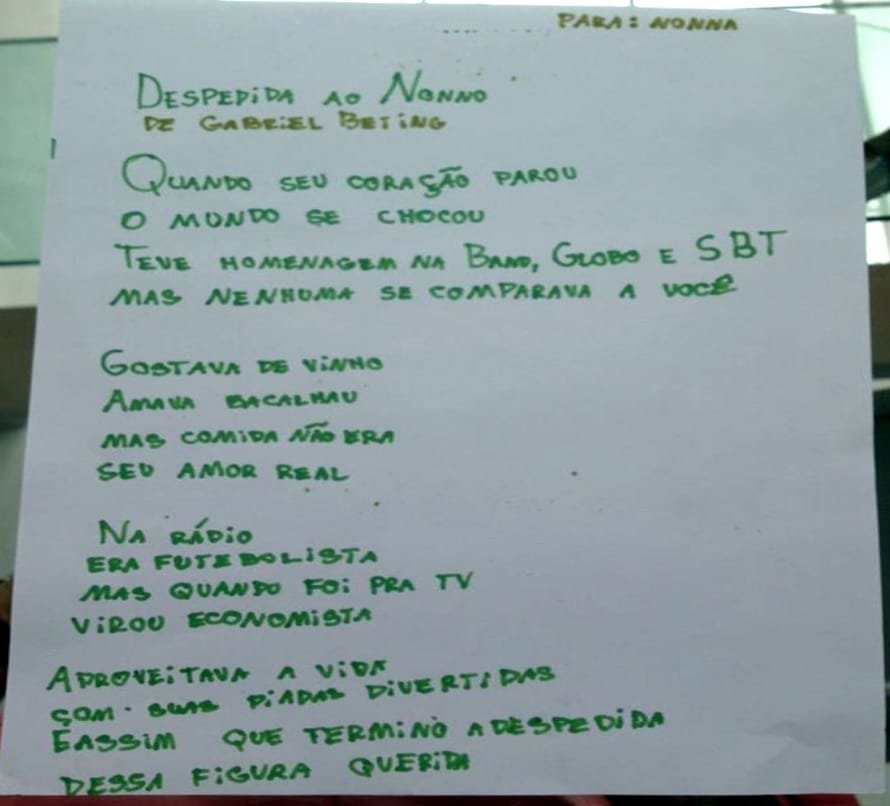 PARA: NONNA
DESPEDIDA AO NONNO
DE GABRIEL BETING
QUANDO SEU CORAÇÃO PAROU
O MUNDO SE CHOCOU
TEVE HOMENAGEM NA BAND, GLOBO E SBT
MAS NENHUMA SE COMPARAVA A VOCÊ
GOSTAVA DE VINHO
AMAVA BACALHAU
MAS COMIDA NÃO ERA
SEU AMOR REAL
NA RÁDIO
ERA FUTEBOLISTA
MAS QUANDO FOI PRA TV
VIROU ECONOMISTA
APROVEITAVA A VIDA
COM SUAS PIADAS DIVERTIDAS
E ASSIM QUE TERMINO A DESPEDIDA
DESSA FIGURA QUERIDA